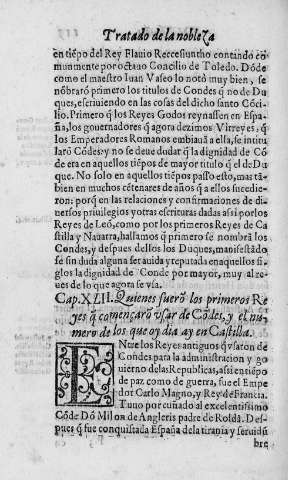 Tratado de la nobleza
en tiẽpo del Rey Flauio Reccesiuntho contando cõ
munmente por octauo Concilio de Toledo. Dõde
como el maestro Iuan Vaseo lo notò muy bien, se
nõbrarõ primero los titulos de Condes q̃ no de Du
ques, escriuiendo en las cosas del dicho santo Cõci-
lio. Primero q̃ los Reyes Godos reynassen en Espa-
ña, los gouernadores q̃ agora dezimos Virreyes, q̃
los Emperadores Romanos embiauã a ella, se intitu
larõ Cõdes: y no se deue dudar q̃ la dignidad de Cõ
de era en aquellos tiẽpos de mayor titulo q̃ el de Du
que. No solo en aquellos tiẽpos passo esto, mas tã-
bien en muchos cẽtenares de años q̃ a ellos sucedie-
ron: porq̃ en las relaciones y confirmaciones de di-
uersos priuilegios y otras escrituras dadas assi por los
Reyes de Leõ, como por los primeros Reyes de Ca
stilla y Nauarra, hallamos q̃ primero se nombrã los
Condes, y despues dellos los Duques, manifestãdo
se sin duda alguna ser auida y reputada en aquellos si-
glos la dignidad de Conde por mayor, muy al re-
ues de lo que agora se vsa.
Cap. XLII. Quienes fuerõ los primeros Re
yes q̃ començarõ vsar de Cõdes, y el nu-
mero de los que oy dia ay en Castilla.
ENtre los Reyes antiguos q̃ vsaron de
Condes para la administracion y go
uierno de las Republicas, assi en tiẽpo
de paz como de guerra, fue el Empe
dor Carlo Magno, y Rey de Francia.
Tuuo por cuñado al excelentissimo
Cõde Dõ Milon de Angleris padre de Roldã. Des-
pues q̃ fue conquistada España de la tirania y seruidũ
bre